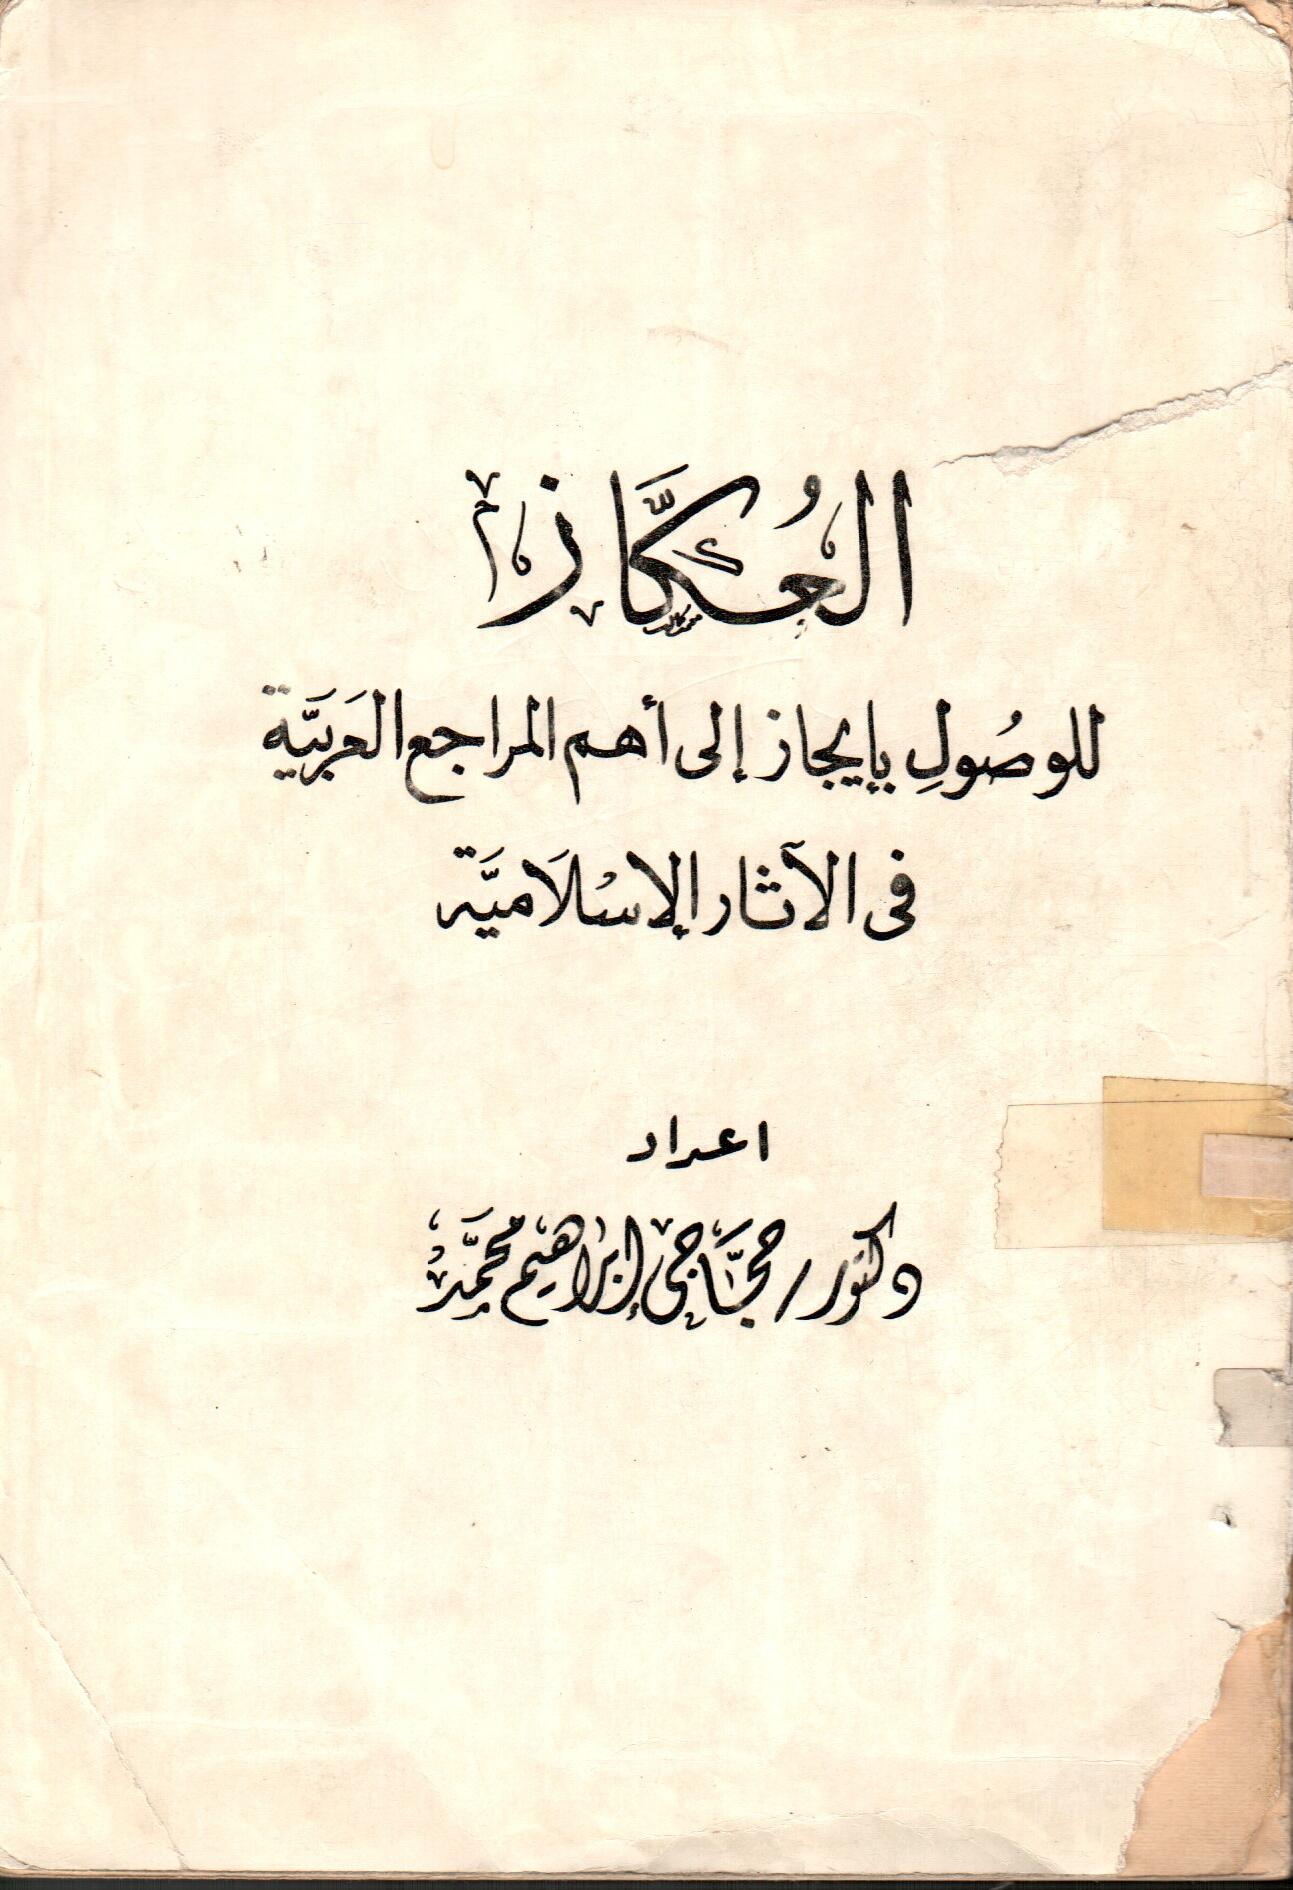 العُكَّاز
للوصُولِ بإيجاز إلى أهم المراجع العَربيَّة
فى الآثار الإسْلَاميَّة
اعداد
دكتور/ حجَّاجى إبراهيم محمَّد